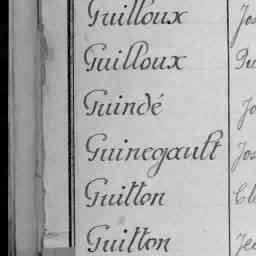 Guilloux Jos
Guilloux
Guindé Jo
Guinegault Jos
Guitton
Guitton Jea